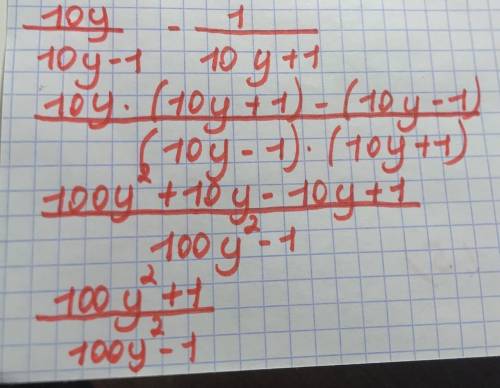 10y/10y-1 - 1/10y+1
10y·(10y+1)-(10y-1)/(10y-1)·(10y+1)
100y²+10y-10y+1/100y²-1
100y²+1/100y²-1